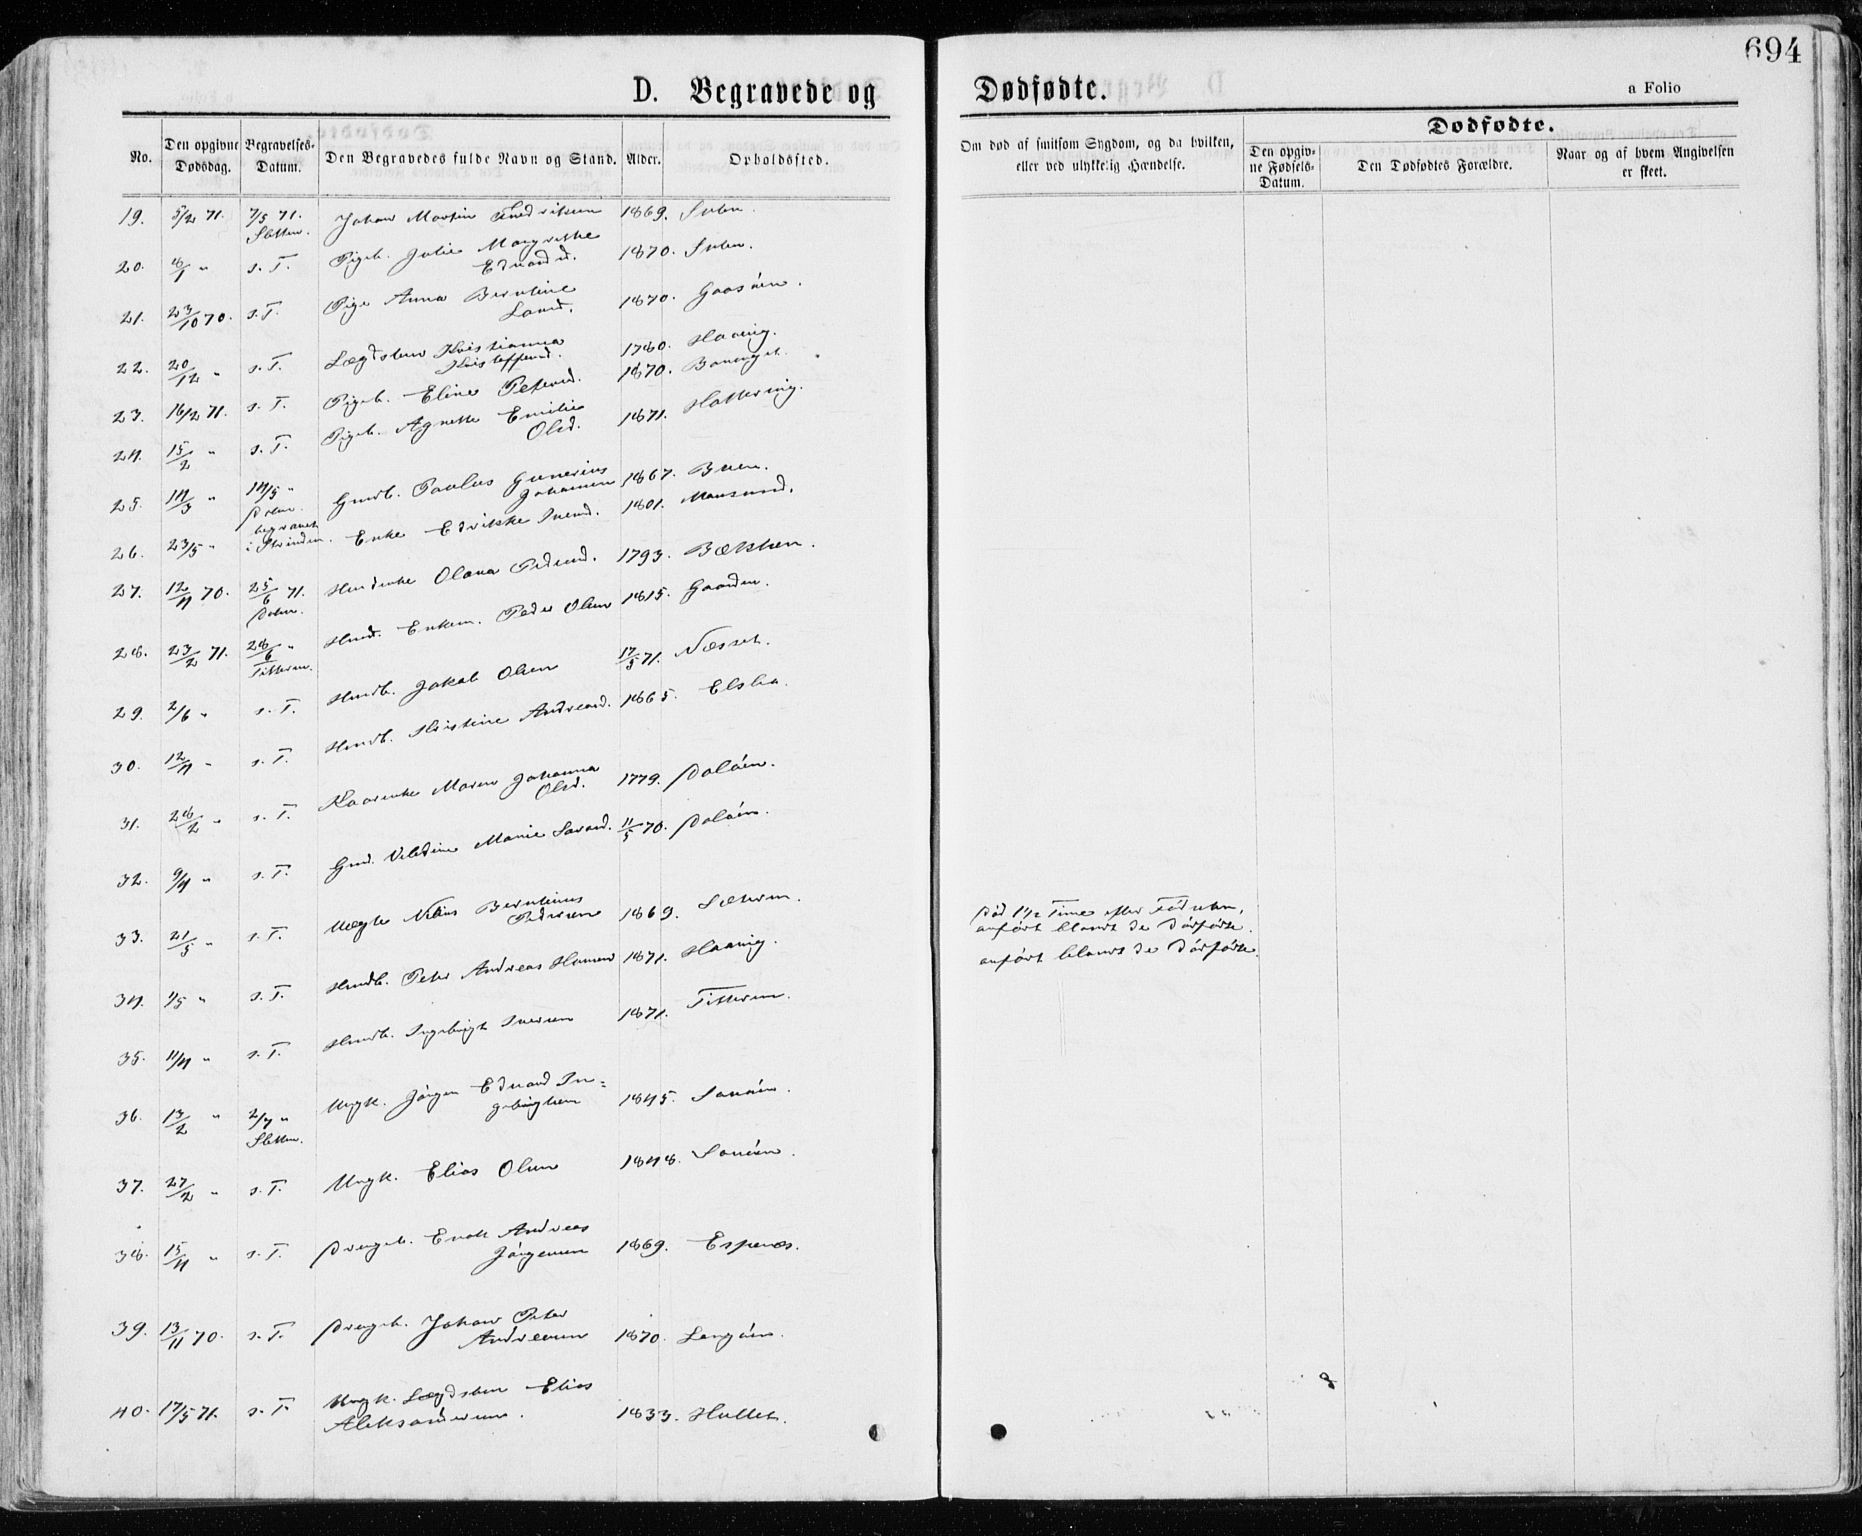 694
D. Begravede og Dødfødte.
a Folio
No.
Den opgivne Dødsdag.
Begravelses-Datum.
Den Begravedes fulde Navn og Stand.
Alder.
Opholdssted.
Om død af smitsom Sygdom, og da hvilken, eller ved ulykkelig Hændelse.
Dødfødte.
Den opgivne Fødsels-Datum.
Den Dødfødtes Forældre.
Naar og af hvem Angivelsen er skeet.
19. 5/2 71. 7/5 71. Johan Martin Fredriksen 1869. Sulen.
Sletten.
20. 8/1 " s. T. Pigeb. Julie Margrethe
Eduardsd. 1870. Sulen.
21. 23/10 70. s. T. Pige Anna Berntine
Larsd. 1870. Gaasöen.
22. 20/12 " s. T. Lægdslem Kristianna
Kristoffersd. 1780. Haavig.
23. 16/2 71. s. T. Pigeb. Eline Petersd. 1870.
24. 15/2 " s. T. Pigeb. Agnette Emilie
Olsd. 1871. Hattevig.
25. 14/3 " 14/5 " Gmdb. Paulus Gunerius
Johansen 1867. Buen.
Dolm.
26. 23/5 " begravet
i Strinden. Enke Edvikke Iversd. 1801. Mausund.
27. 12/4 70. 25/6 71. Husdenke Olava Pedersd. 1793. Bækken.
Dolm.
28. 23/2 71. 28/6 " Husd. Enkem. Peder Olsen 1815. Gaarden.
Titteran.
29. 2/6 " s. T. Husdb. Jakob Olsen 17/5 71. Næsset.
30. 12/4 " s. T. Husdb. Kirstine Andreasd. 1865. Elsla.
31. 28/2 " s. T. Kaarenke Maren Johanna
Olsd. 1779. Dolöen.
32. 9/4 " s. T. Gmd. Valdine Marie Larsd. 11/5 70. Dolöen.
33. 21/5 " s. T. Nilius Berntinus
Pedersen 1869. Sæteren.
Död 1½ Time efter Födselen,
anfört blandt de Dödfödte.
34. 1/5 " s. T. Husdb. Peter Andreas Hansen 1871. Haavig.
anfört blandt de Dödfödte.
35. 11/4 " s. T. Husdb. Ingebrigt Iversen 1871. Titteran.
36. 13/2 " 2/7 " Ungk. Jörgen Eduard In=
gebrigtsen 1845. Sauöen.
Sletten.
37. 27/2 " s. T. Ungk. Elias Olsen 1848. Sauöen.
38. 15/4 " s. T. Drengeb. Enok Andreas
Jörgensen 1869. Espenæs.
39. 13/11 70. s. T. Drengeb. Johan Peter
Andreasen 1870. Langöen.
40. 17/5 71. s. T. Ungk. Lægdslem Elias
Aleksandersen. 1833. Hullet.